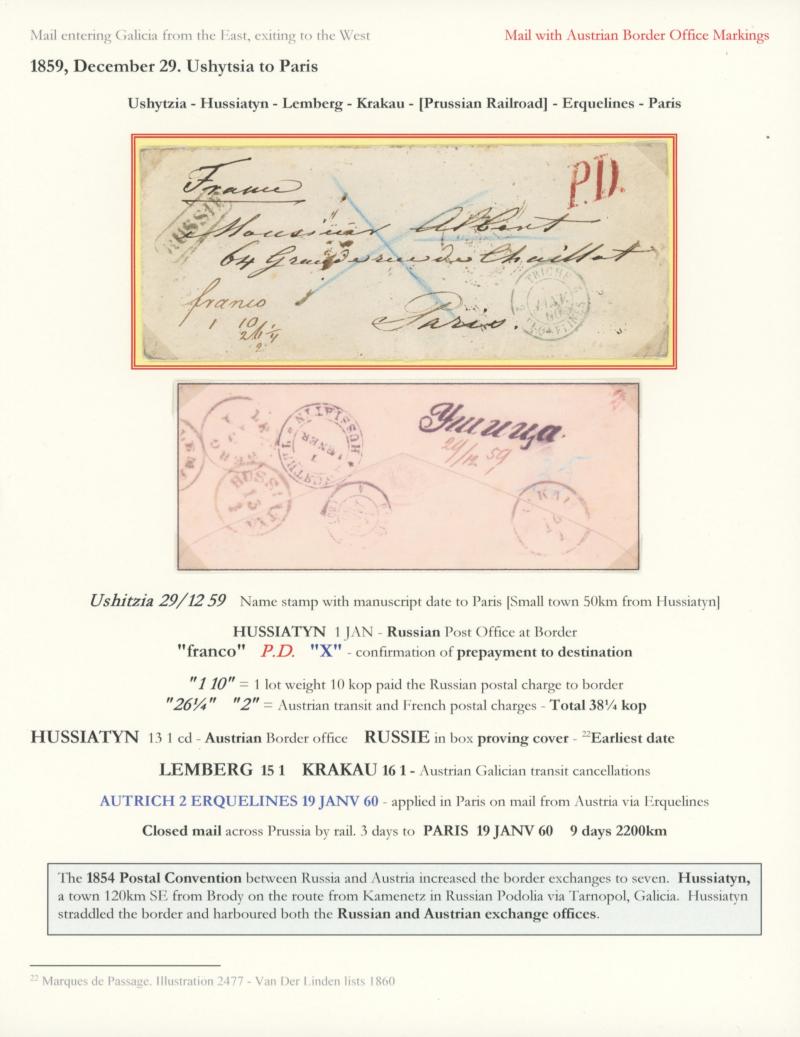 Mail entering Galicia from the East, exiting to the West
Mail with Austrian Border Office Markings
1859, December 29. Ushytsia to Paris
Ushytzia - Hussiatyn - Lemberg - Krakau - [Prussian Railroad] - Erquelines - Paris
France
P.D.
RUSSIE
Monsieur Albert
64 Grande rue de Chaillot
franco
1 10
Paris.
HUSSIATYN
Ушица.
29/12 59
Ushitzia 29/12 59 Name stamp with manuscript date to Paris [Small town 50km from Hussiatyn]
HUSSIATYN 1 JAN - Russian Post Office at Border
"franco" P.D. "X" - confirmation of prepayment to destination
"1 10" = 1 lot weight 10 kop paid the Russian postal charge to border
"26¼" "2" = Austrian transit and French postal charges - Total 38¼ kop
HUSSIATYN 13 1 cd - Austrian Border office RUSSIE in box proving cover - 22Earliest date
LEMBERG 15 1 KRAKAU 16 1 - Austrian Galician transit cancellations
AUTRICH 2 ERQUELINES 19 JANV 60 - applied in Paris on mail from Austria via Erquelines
Closed mail across Prussia by rail. 3 days to PARIS 19 JANV 60 9 days 2200km
The 1854 Postal Convention between Russia and Austria increased the border exchanges to seven. Hussiatyn,
a town 120km SE from Brody on the route from Kamenetz in Russian Podolia via Tarnopol, Galicia. Hussiatyn
straddled the border and harboured both the Russian and Austrian exchange offices.
22 Marques de Passage. Illustration 2477 - Van Der Linden lists 1860